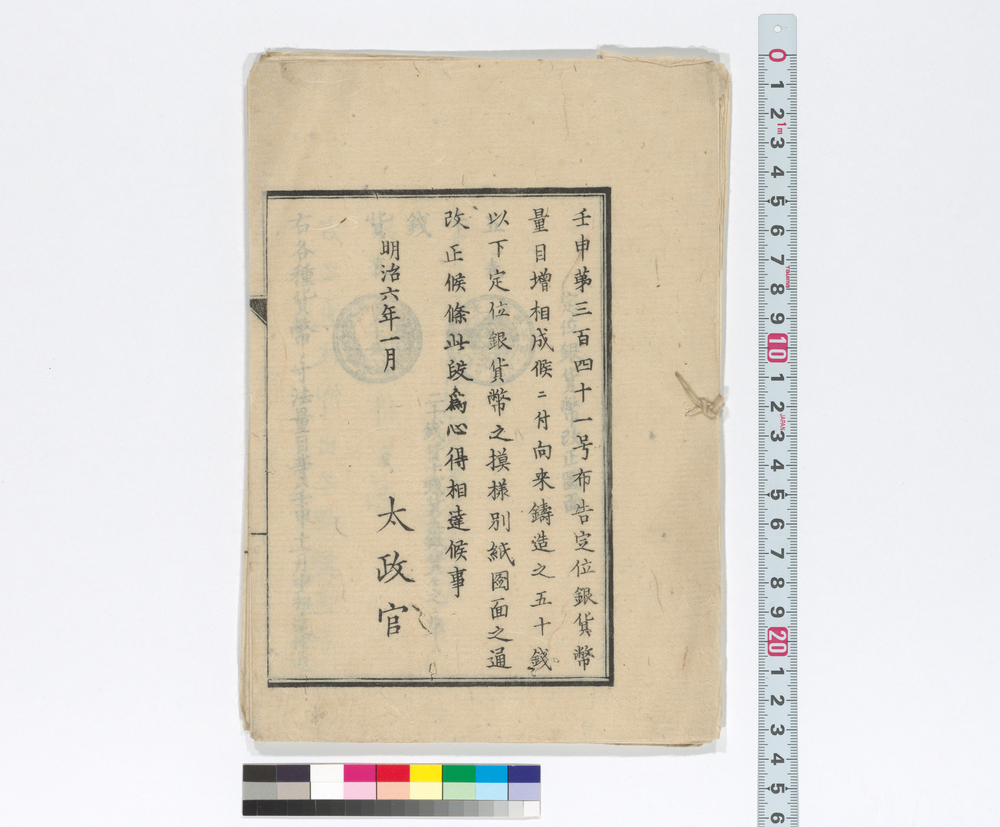 壬申第三百四十一号布告定位銀貨幣
量目増相成候ニ付向来鋳造之五十錢
以下定位銀貨幣之摸様別紙図面之通
改正候條此段為心得相達候事
明治六年一月
太政官
0
1
2
1m
3
4
5
6
7
8
9
10
1
2
JAPAN
3
4
5
6
7
8
9
20
1
2
3
4
5
6